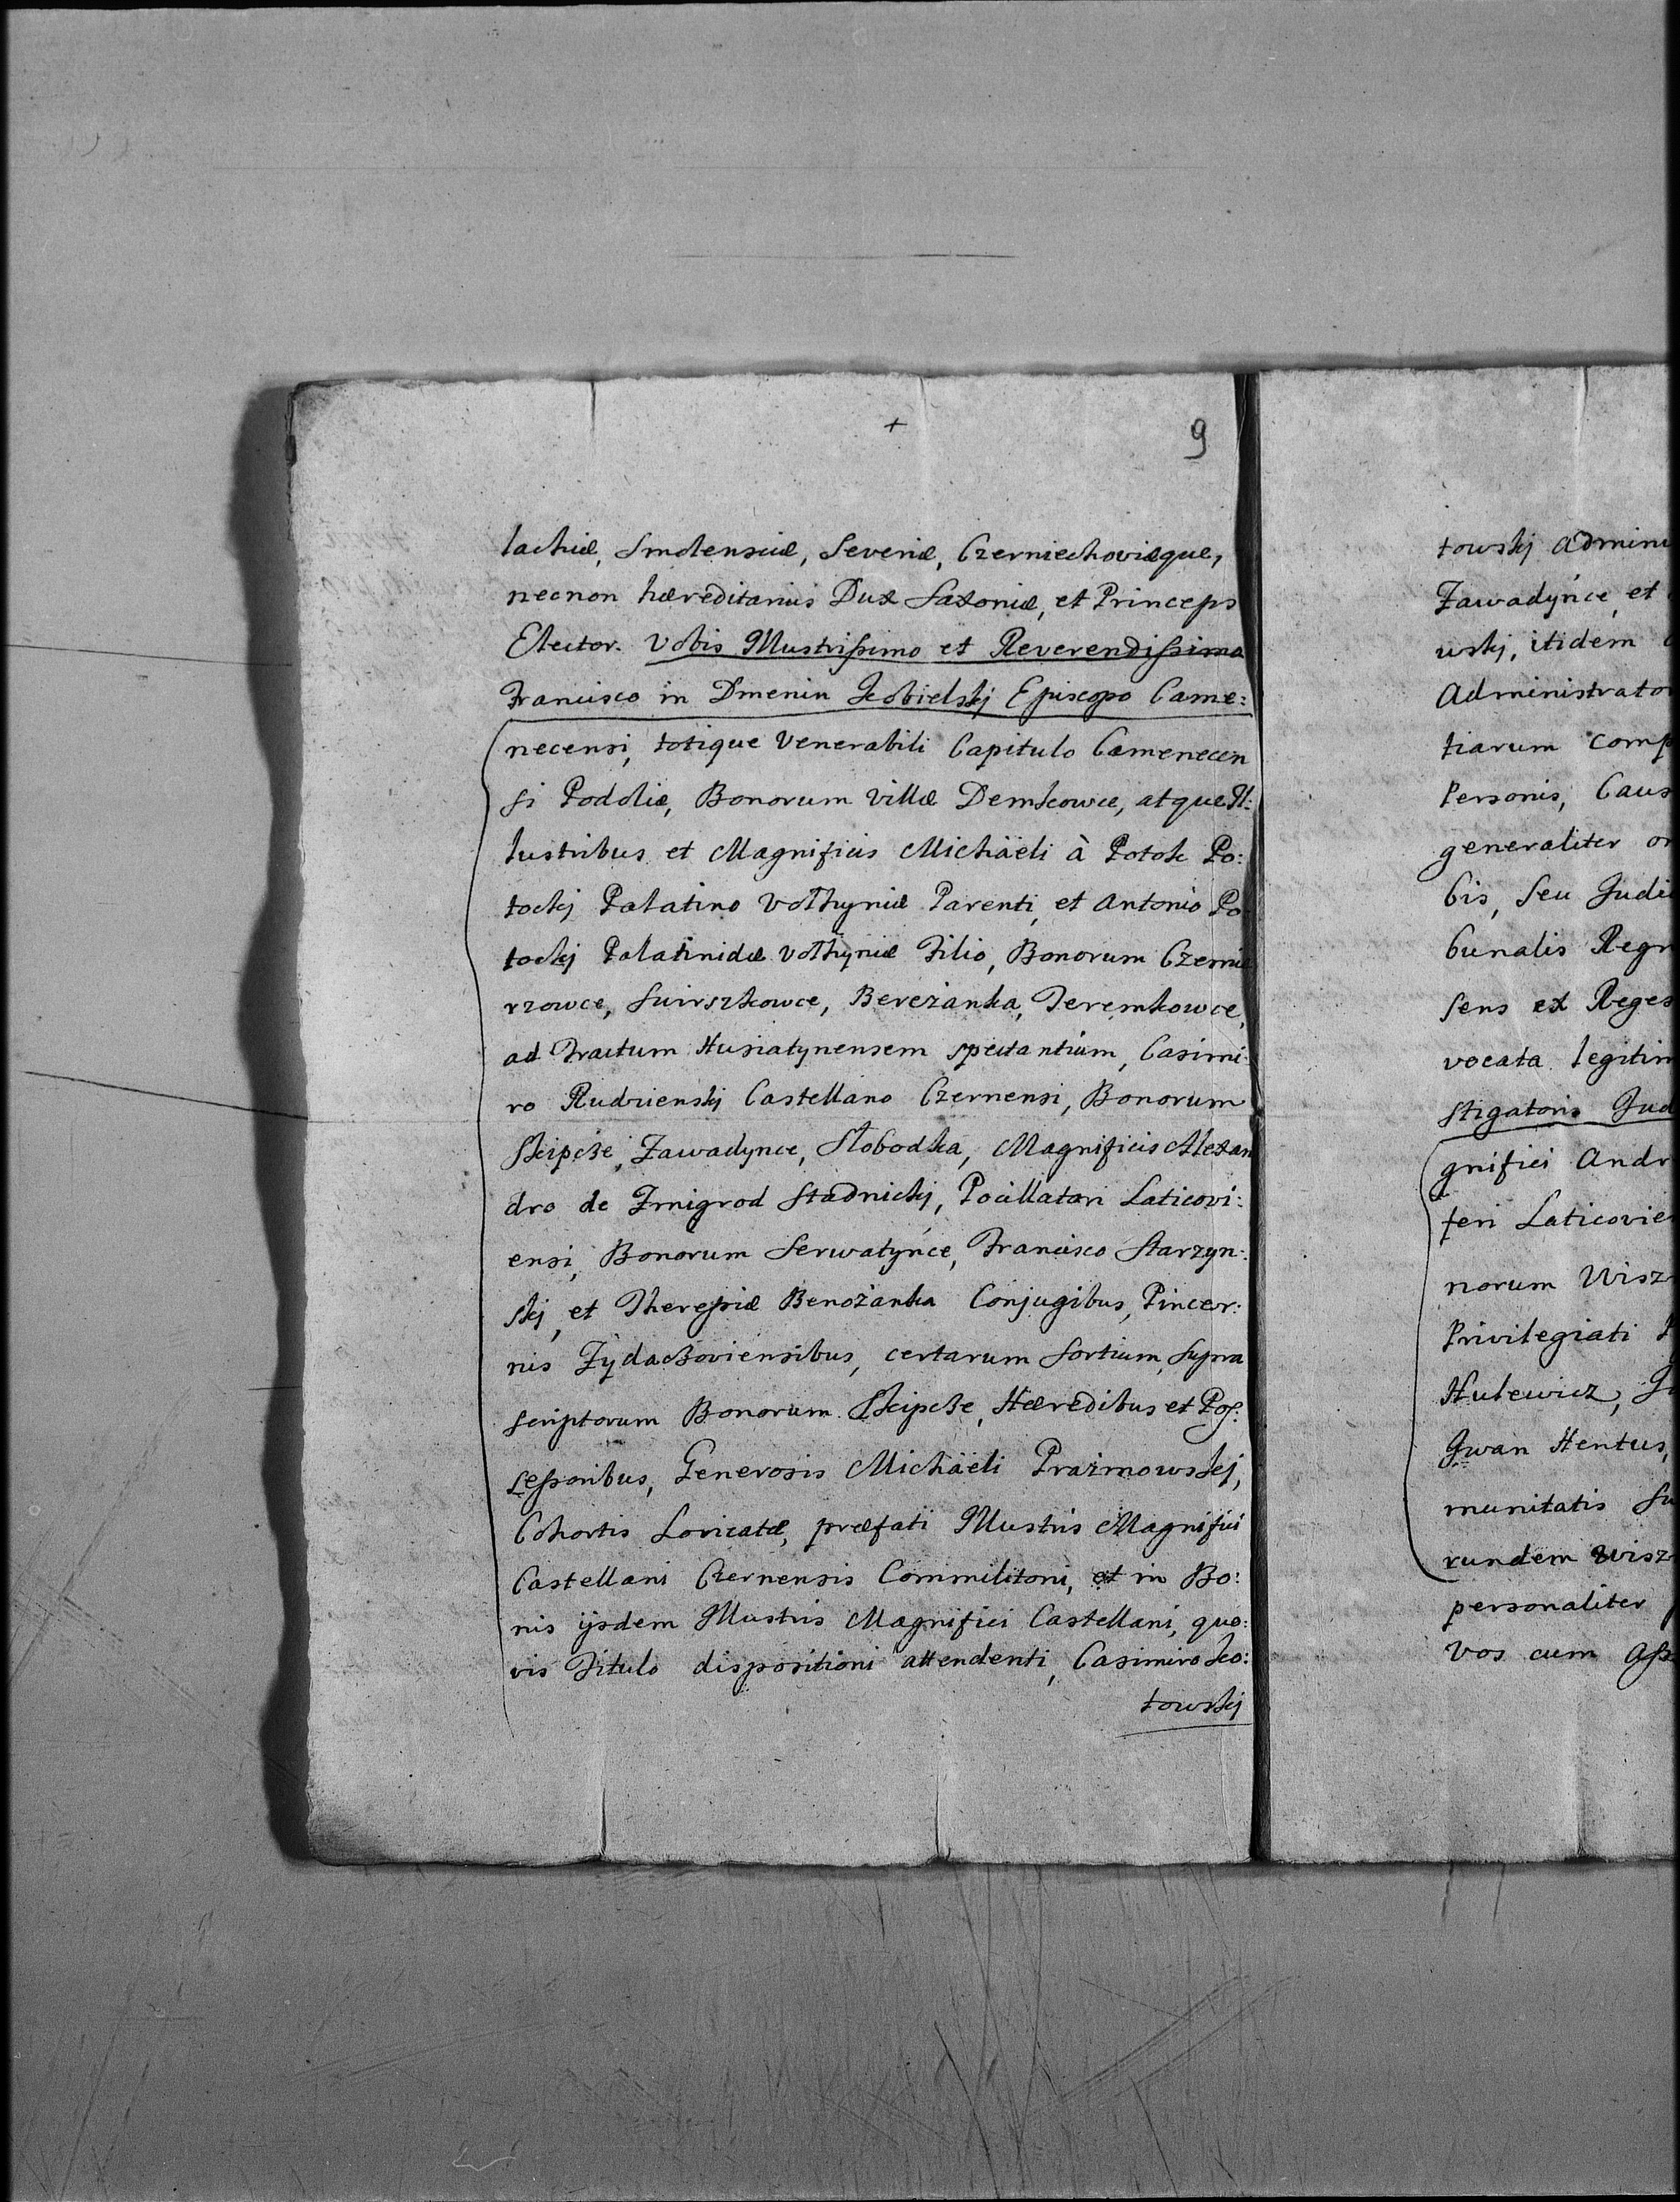 +
9
lachiæ, Smolensciæ, Severiæ, Czerniechoviæque,
necnon hæreditarius Dux Saxoniæ, et Princeps
Elector. Vobis Illustrißimo et Reverendißimo
Francisco in Dmenin Kobielskj Episcopo Came:
necensi, totique Venerabili Capitulo Camenecen
si Podoliæ, Bonorum Villæ Demkowce, atque Il:
lustribus et Magnificis Michaëli à Potok Po:
tockj Palatino Volhyniæ Parenti, et Antonio Po
tockj Palatinidæ Volhyniæ Filio, Bonorum Czernie
rzowce, Suirszkowce, Bereżanka, Jeremkowce,
ad Tractum Husiatynensem spectantium, Casimi:
ro Rudzienskj Castellano Czernensi, Bonorum
Skipcze, Zawadynce, Słobodka, Magnificis Alexan
dro de Zmigrod Stadnickj, Pocillatori Laticovi:
ensi, Bonorum Serwatyńce, Francisco Starzyn:
skj, et Theresiæ Benożanka Conjugibus, Pincer:
nis Zydaczoviensibus, certarum Sortium, supra
scriptorum Bonorum Skipcze, Hæredibus et Pos:
seßoribus, Generosis Michaëli Prażmowskj,
Cohortis Loricatæ, præfati Illustris Magnifici
Castellani Czernensis Commilitoni, et in Bo:
nis ijsdem Illustris Magnifici Castellani, quo:
vis Titulo dispositioni attendenti, Casimiro Ko:
towskj
towskj Admini
Zawadyńce, et
uskj, itidem
Administrato
tiarum comp
Personis, Caus
generaliter or
bis, seu Judi
bunalis Regn
sens ex Reges
vocata legitim
stigatoris Jud
gnifici Andr
feri Laticovie
norum Wisz
Privilegiati
Hulewicz, J
Iwan Hentus,
munitatis Su
rundem Wisz
personaliter
Vos cum Aß